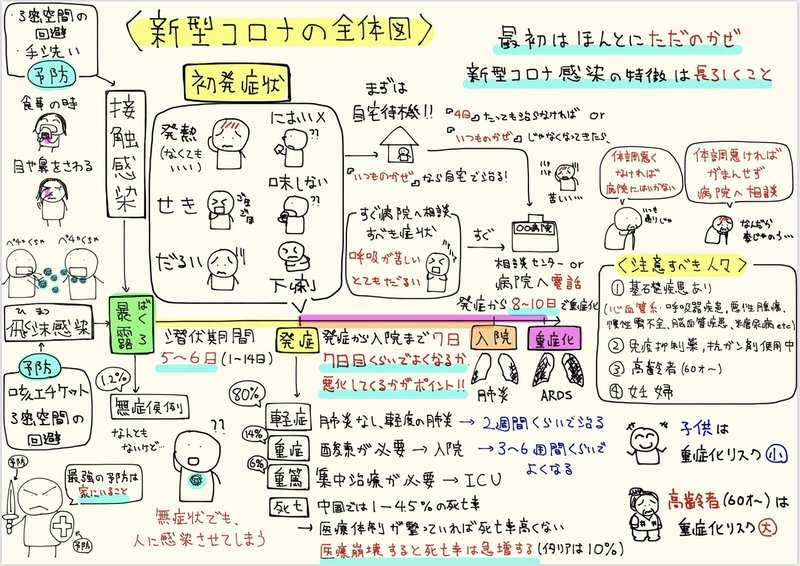 〈新型コロナの全体図〉
最初はほんとにただのかぜ
新型コロナ感染の特徴は長引くこと
3密空間の
回避
・手洗い
予防
食事の時
目や鼻をさわる
接触感染
ペチャくちゃ
ペチャくちゃ
ひまつ
飛沫感染
予防
咳エチケット
3密空間の
回避
ばくろ
暴露
初発症状
発熱
(なくても
いい)
せき
ゴホ
ゴホ
だるい
においX
??
味しない
??
下痢
まずは
自宅待機!!
『いつものかぜ』なら自宅で治る!
『4日』たっても治らなければ or
『いつものかぜ』じゃなくなってきたら、
苦しい…
すぐ病院へ相談
すべき症状
呼吸が苦しい
とてもだるい
すぐ
〇〇病院
相談センター or
病院へ電話
体調悪く
なければ
病院にはいかない
いつも
通りじゃ
体調悪ければ
がまんせず
病院へ相談
なんだか
変じゃのう…
〈注意すべき人々〉
① 基礎疾患あり
(心血管系・呼吸器疾患,悪性腫瘍,
慢性腎不全,脳血管疾患,糖尿病etc)
② 免疫抑制薬,抗ガン剤使用中
③ 高齢者(60才〜)
④ 妊婦
発症から8〜10日で重症化
潜伏期間
5〜6日(1〜14日)
発症
発症から入院まで7日
7日目くらいでよくなるか、
悪化してくるかがポイント!!
入院
重症化
肺炎
ARDS
1.2%
無症候例
なんとも
ないけど…
??
無症状でも、
人に感染させてしまう
80%
軽症
肺炎なし、軽度の肺炎→2週間くらいで治る
14%
重症
酸素が必要→入院→3〜6週間くらいで
よくなる
6%
重篤
集中治療が必要→ICU
死亡
中国では1〜4.5%の死亡率
→医療体制が整っていれば死亡率高くない
医療崩壊すると死亡率は急増する(イタリアは10%)
子供は
重症化リスク小
高齢者(60才〜)は
重症化リスク大
予防
最強の予防は
家にいること
予防